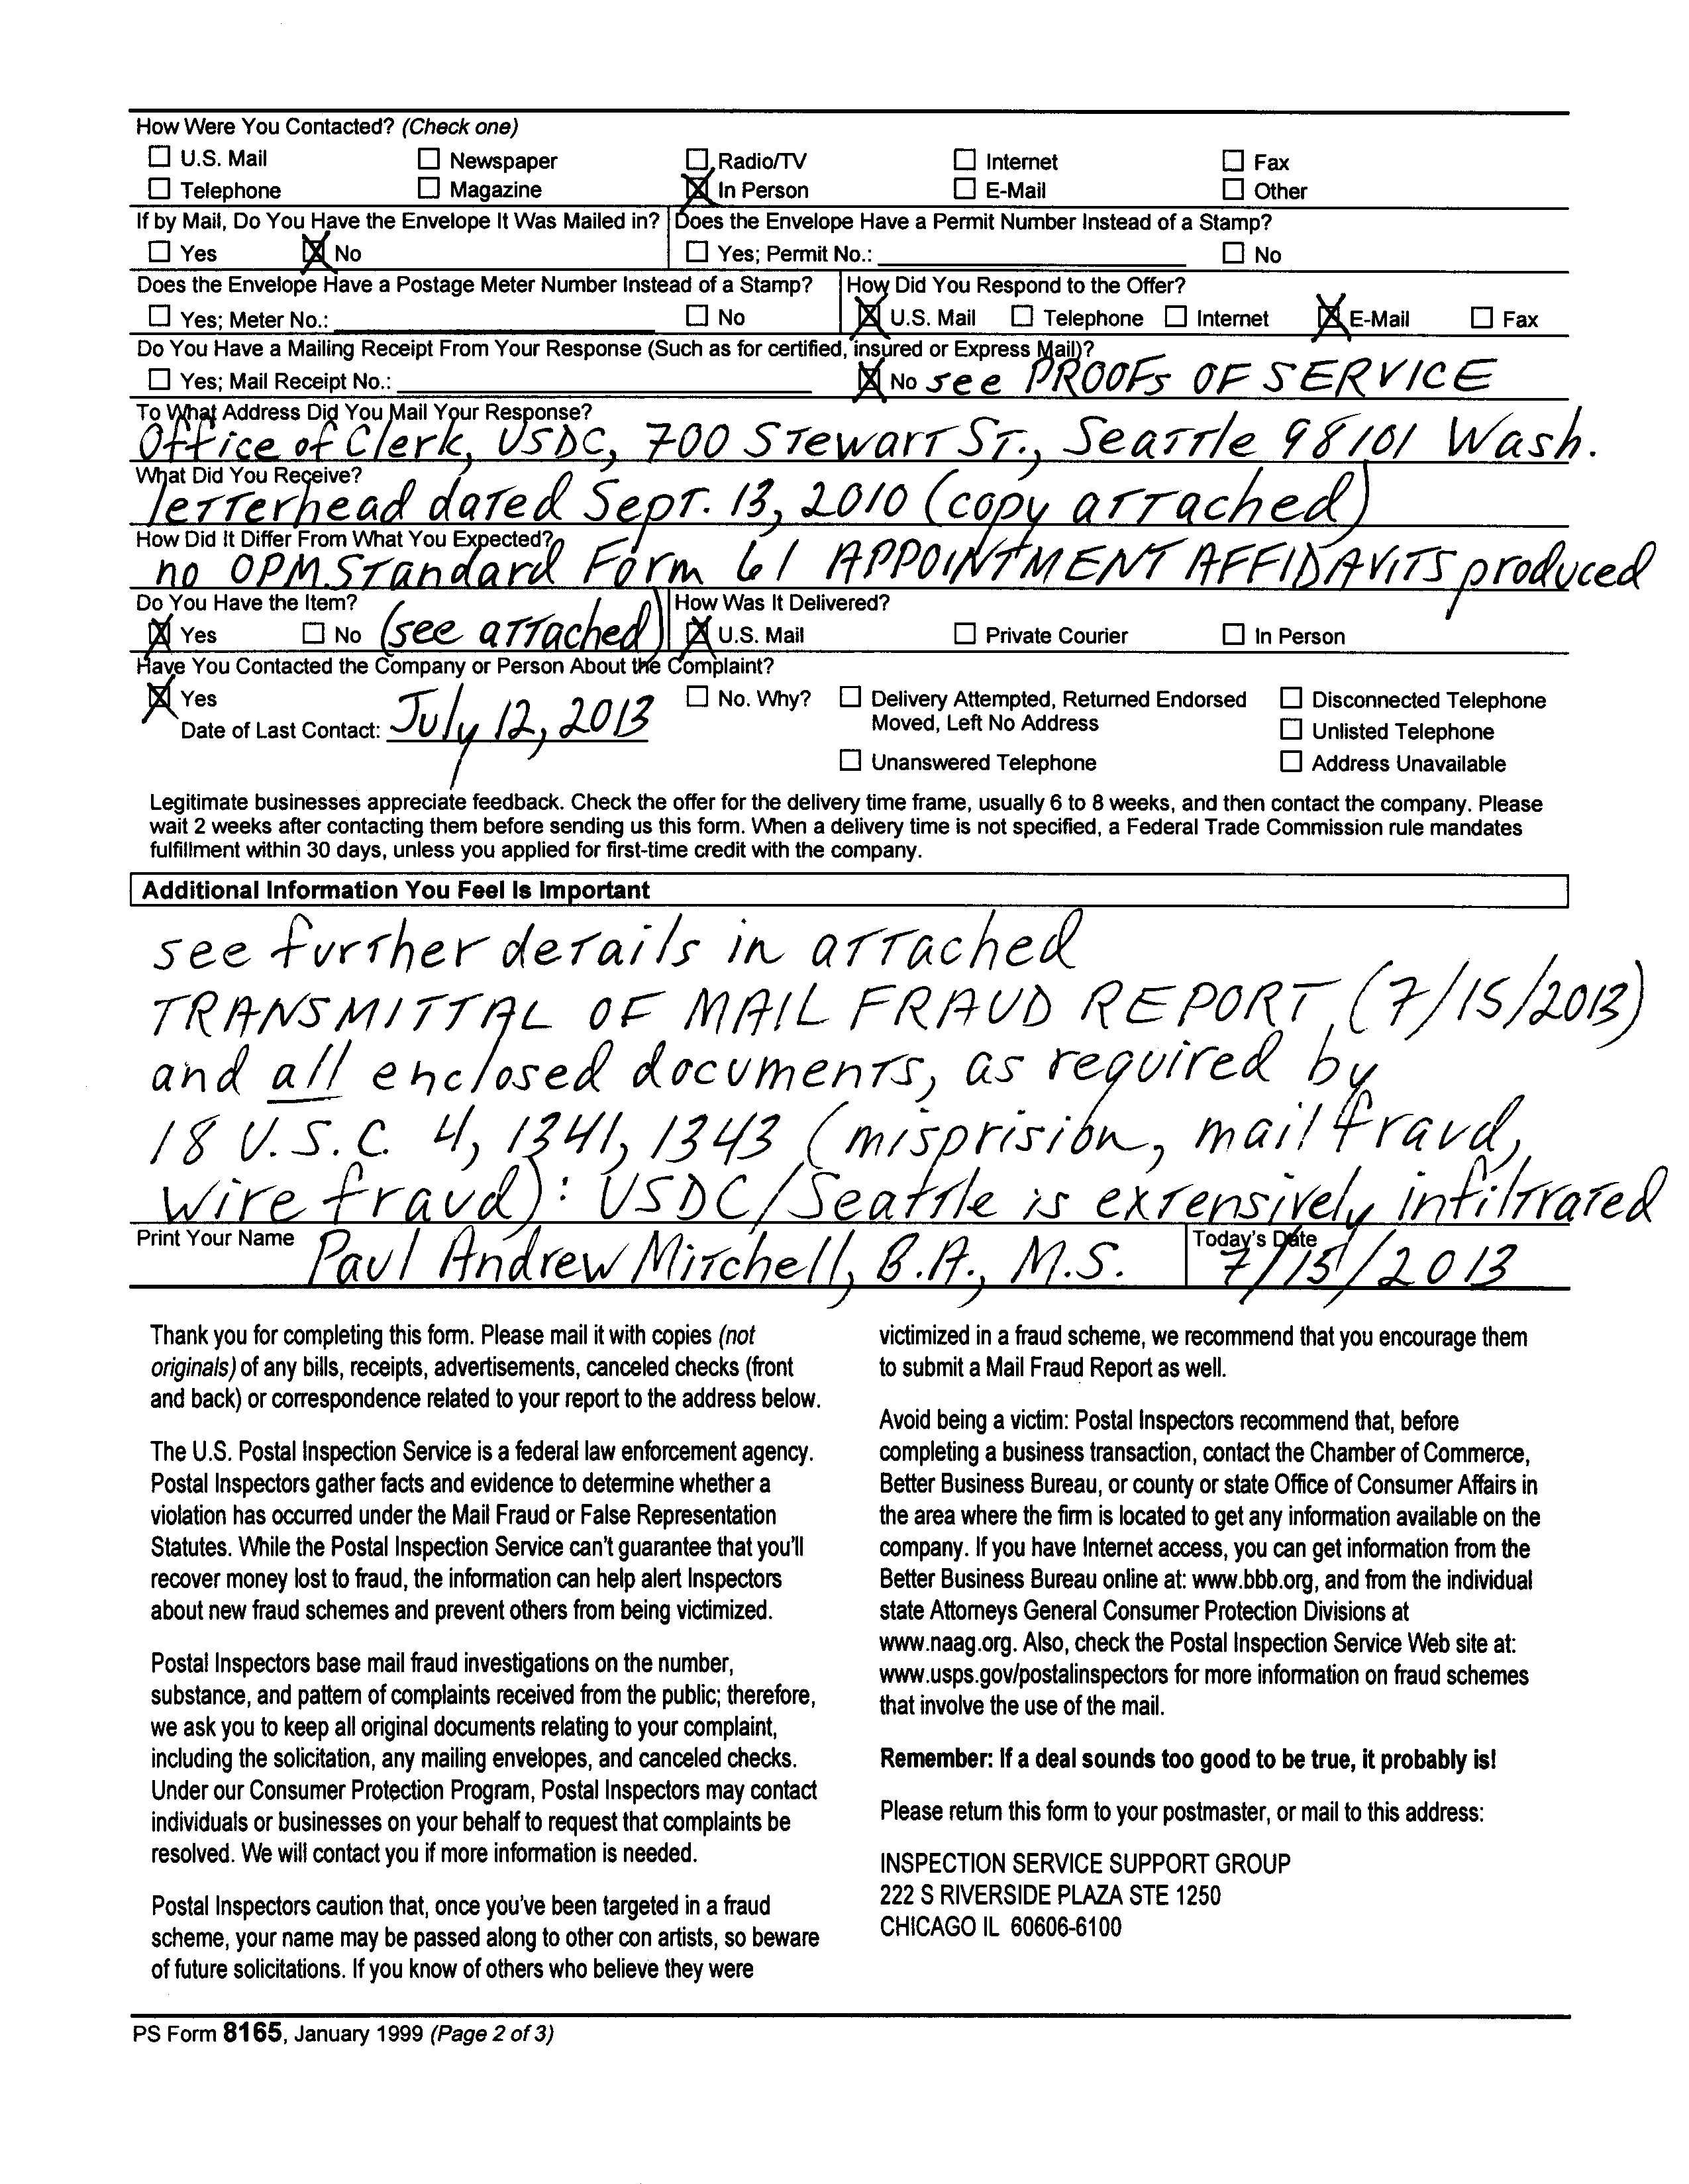 How Were You Contacted? (Check one)
☐ U.S. Mail ☐ Newspaper ☐ Radio/TV ☐ Internet ☐ Fax
☐ Telephone ☐ Magazine ☒ In Person ☐ E-Mail ☐ Other
If by Mail, Do You Have the Envelope It Was Mailed in? Does the Envelope Have a Permit Number Instead of a Stamp?
☐ Yes ☒ No ☐ Yes; Permit No.: ☐ No
Does the Envelope Have a Postage Meter Number Instead of a Stamp? How Did You Respond to the Offer?
☐ Yes; Meter No.: ☐ No ☒ U.S. Mail ☐ Telephone ☐ Internet ☒ E-Mail ☐ Fax
Do You Have a Mailing Receipt From Your Response (Such as for certified, insured or Express Mail)?
☐ Yes; Mail Receipt No.: ☒ No see PROOFs OF SERVICE
To What Address Did You Mail Your Response?
Office of Clerk, USDC, 700 Stewart St., Seattle 98101 Wash.
What Did You Receive?
letterhead dated Sept. 13, 2010 (copy attached)
How Did It Differ From What You Expected?
no OPM Standard Form 61 APPOINTMENT AFFIDAVITS produced
Do You Have the Item? How Was It Delivered?
☒ Yes ☐ No (see attached) ☒ U.S. Mail ☐ Private Courier ☐ In Person
Have You Contacted the Company or Person About the Complaint?
☒ Yes ☐ No. Why? ☐ Delivery Attempted, Returned Endorsed ☐ Disconnected Telephone
Moved, Left No Address
Date of Last Contact: July 12, 2013 ☐ Unlisted Telephone
☐ Unanswered Telephone ☐ Address Unavailable
Legitimate businesses appreciate feedback. Check the offer for the delivery time frame, usually 6 to 8 weeks, and then contact the company. Please
wait 2 weeks after contacting them before sending us this form. When a delivery time is not specified, a Federal Trade Commission rule mandates
fulfillment within 30 days, unless you applied for first-time credit with the company.
Additional Information You Feel Is Important
see further details in attached
TRANSMITTAL OF MAIL FRAUD REPORT (7/15/2013)
and all enclosed documents, as required by
18 U.S.C. 4, 1341, 1343 (misprision, mail fraud,
wire fraud): USDC/Seattle is extensively infiltrated
Print Your Name Paul Andrew Mitchell, B.A., M.S. Today's Date 7/15/2013
Thank you for completing this form. Please mail it with copies (not
originals) of any bills, receipts, advertisements, canceled checks (front
and back) or correspondence related to your report to the address below.
The U.S. Postal Inspection Service is a federal law enforcement agency.
Postal Inspectors gather facts and evidence to determine whether a
violation has occurred under the Mail Fraud or False Representation
Statutes. While the Postal Inspection Service can't guarantee that you'll
recover money lost to fraud, the information can help alert Inspectors
about new fraud schemes and prevent others from being victimized.
Postal Inspectors base mail fraud investigations on the number,
substance, and pattern of complaints received from the public; therefore,
we ask you to keep all original documents relating to your complaint,
including the solicitation, any mailing envelopes, and canceled checks.
Under our Consumer Protection Program, Postal Inspectors may contact
individuals or businesses on your behalf to request that complaints be
resolved. We will contact you if more information is needed.
Postal Inspectors caution that, once you've been targeted in a fraud
scheme, your name may be passed along to other con artists, so beware
of future solicitations. If you know of others who believe they were
victimized in a fraud scheme, we recommend that you encourage them
to submit a Mail Fraud Report as well.
Avoid being a victim: Postal Inspectors recommend that, before
completing a business transaction, contact the Chamber of Commerce,
Better Business Bureau, or county or state Office of Consumer Affairs in
the area where the firm is located to get any information available on the
company. If you have Internet access, you can get information from the
Better Business Bureau online at: www.bbb.org, and from the individual
state Attorneys General Consumer Protection Divisions at
www.naag.org. Also, check the Postal Inspection Service Web site at:
www.usps.gov/postalinspectors for more information on fraud schemes
that involve the use of the mail.
Remember: If a deal sounds too good to be true, it probably is!
Please return this form to your postmaster, or mail to this address:
INSPECTION SERVICE SUPPORT GROUP
222 S RIVERSIDE PLAZA STE 1250
CHICAGO IL 60606-6100
PS Form 8165, January 1999 (Page 2 of 3)